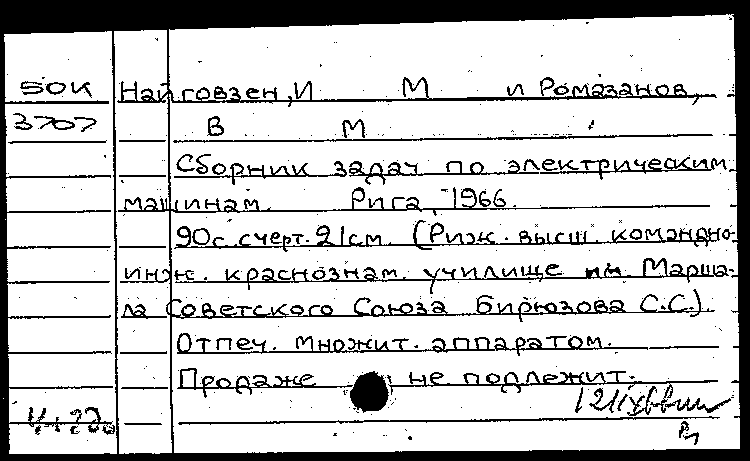 50К Найговзен, И М и Ромазанов,
3707 В М
Сборник задач по электрическим
машинам. Рига, 1966.
90с. счерт. 21см. (Риж. высш. командно-
инж. краснознам. училище им. Марша-
ла Советского Союза Бирюзова С.С.).
Отпеч. множит. аппаратом.
Продаже не подлежит.